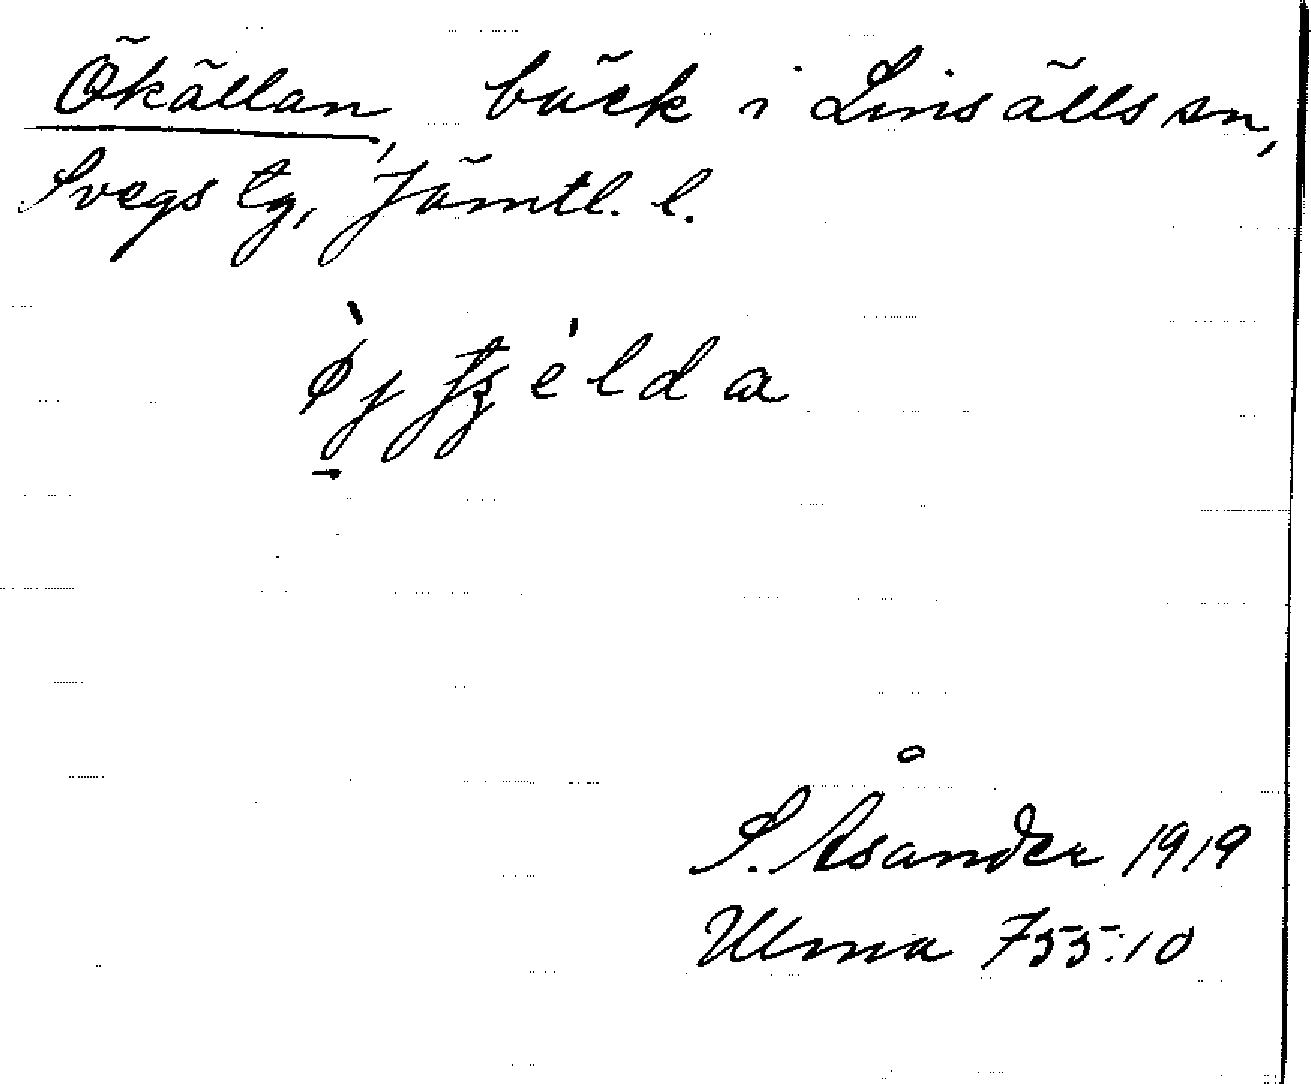 Ökällan, bäck i Linsälls sn,
Svegs tg, Jämtl. l.
S. Åsander 1919
Ulma 755:10